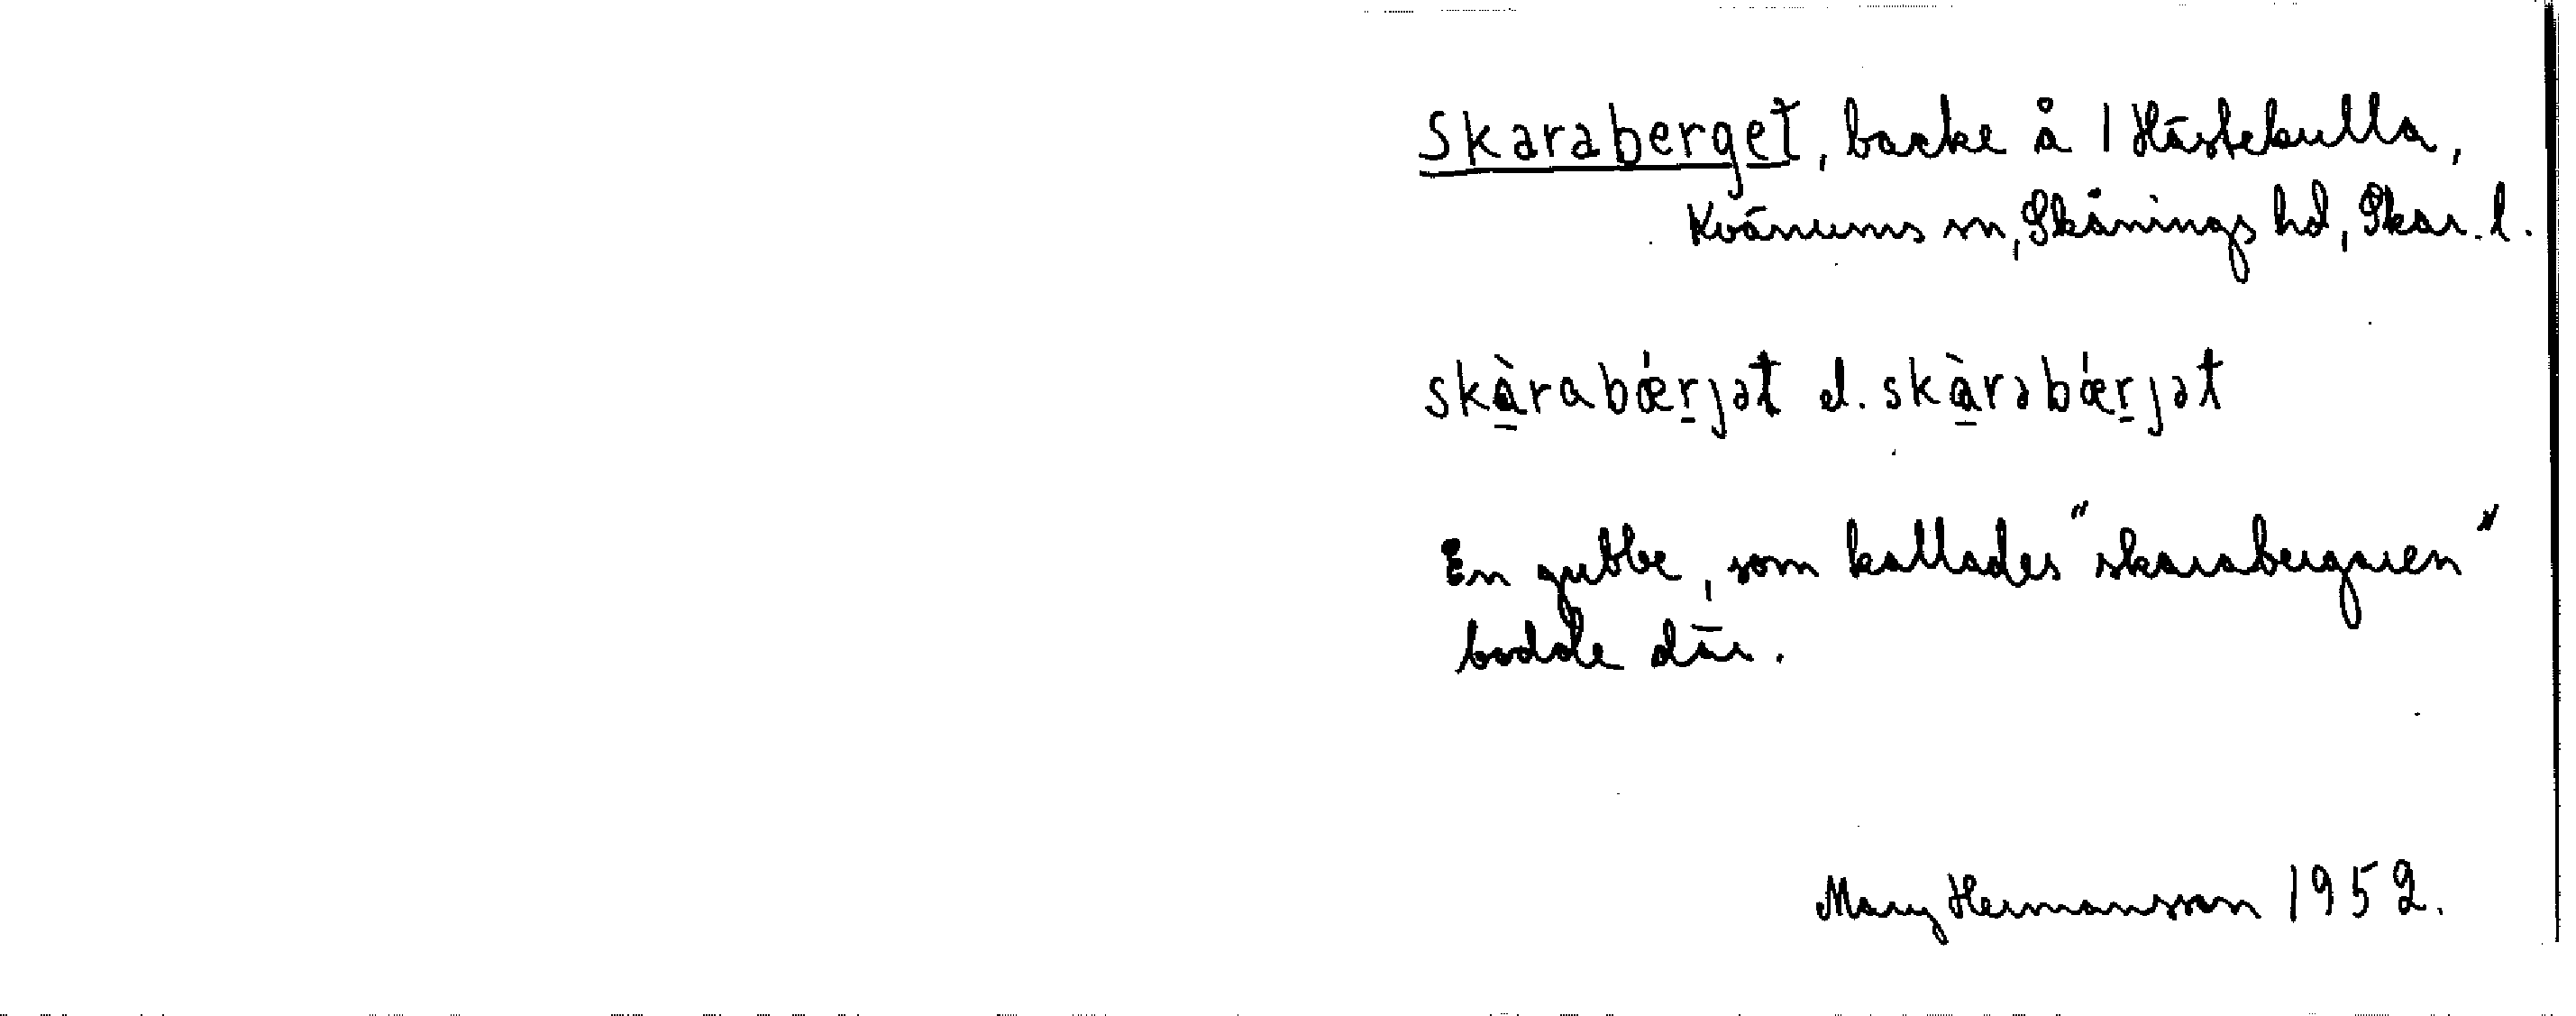 Skaraberget, backe å 1 Hästekulla,
Kvänums sn, Skånings hd, Skar. l.
skàrabǽrjət el. skàrəbǽrjət
En gubbe, som kallades "skarabergaren"
bodde där.
Mary Hermansson 1952.